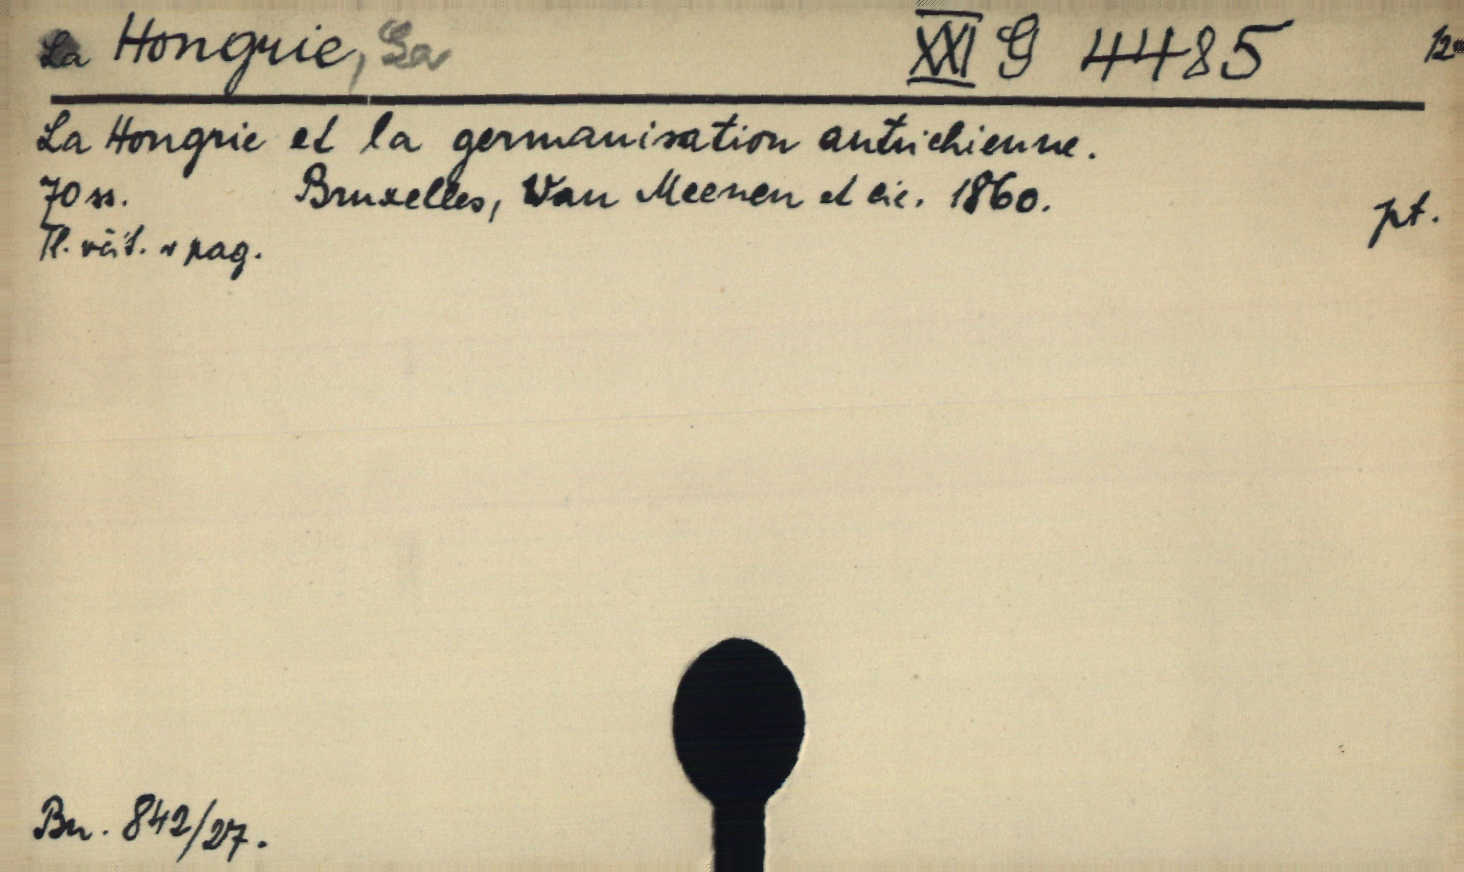 La Hongrie, La XXI G 4485 12°
La Hongrie et la germanisation autrichienne.
70 ss. Bruxelles, Van Meenen et cie. 1860.
pt.
Tl.väl. v pag.
Bn. 842/27.